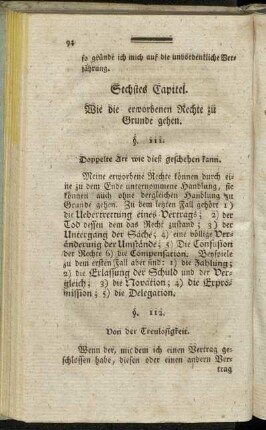 94
so gründe ich mich auf die unvordentliche Ver-
jährung.
Sechstes Capitel.
Wie die erworbenen Rechte zu
Grunde gehen.
§. 111.
Doppelte Art wie dieß geschehen kann.
Meine erworbene Rechte können durch ei-
ne zu dem Ende unternommene Handlung, sie
können auch ohne dergleichen Handlung zu
Grunde gehen. Zu dem letzten Fall gehört 1)
die Uebertretung eines Vertrags; 2) der
Tod dessen dem das Recht zustand; 3) der
Untergang der Sache; 4) eine völlige Ver-
änderung der Umstände; 5) Die Confusion
der Rechte 6) die Compensation. Beyspiele
zu dem ersten Fall aber sind: 1) die Zahlung;
2) die Erlassung der Schuld und der Ver-
gleich; 3) die Novation; 4) die Expro-
mission; 5) die Delegation.
§. 112.
Von der Treulosigkeit.
Wenn der, mit dem ich einen Vertrag ge-
schlossen habe, diesen oder einen andern Ver-
trag